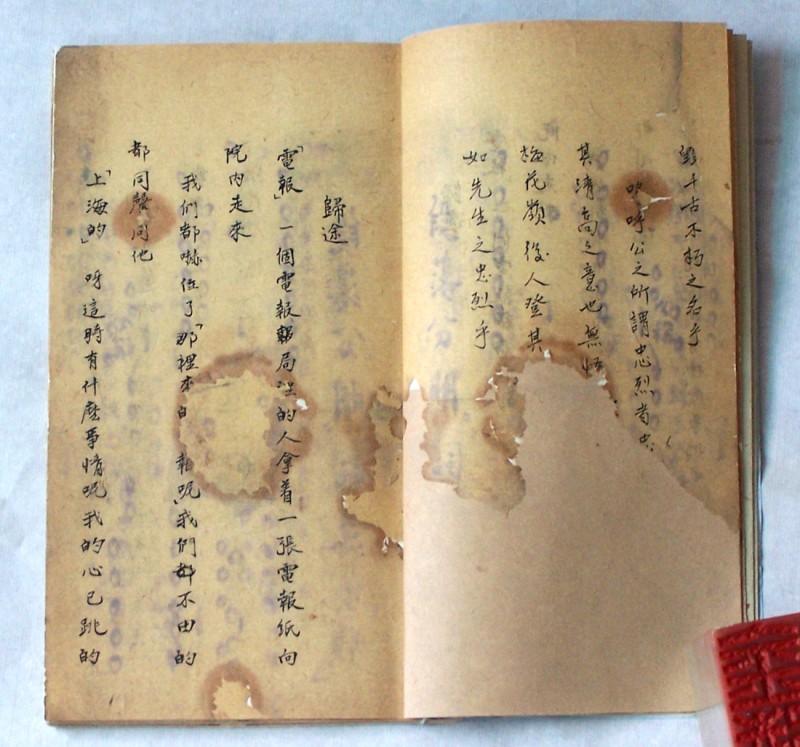 千古不朽之名乎
嗚呼公之所謂忠烈者忠
其清高之意也無悟
梅花嶺後人登其
如先生之忠烈乎
歸途
「電報」一個電報局裡的人拿着一張電報紙向
院内走來
我們都嚇住了「那裡來的 報呢」我們都不由的
都同聲問他
「上海的」呀這時有什麽事情呢我的心已跳的